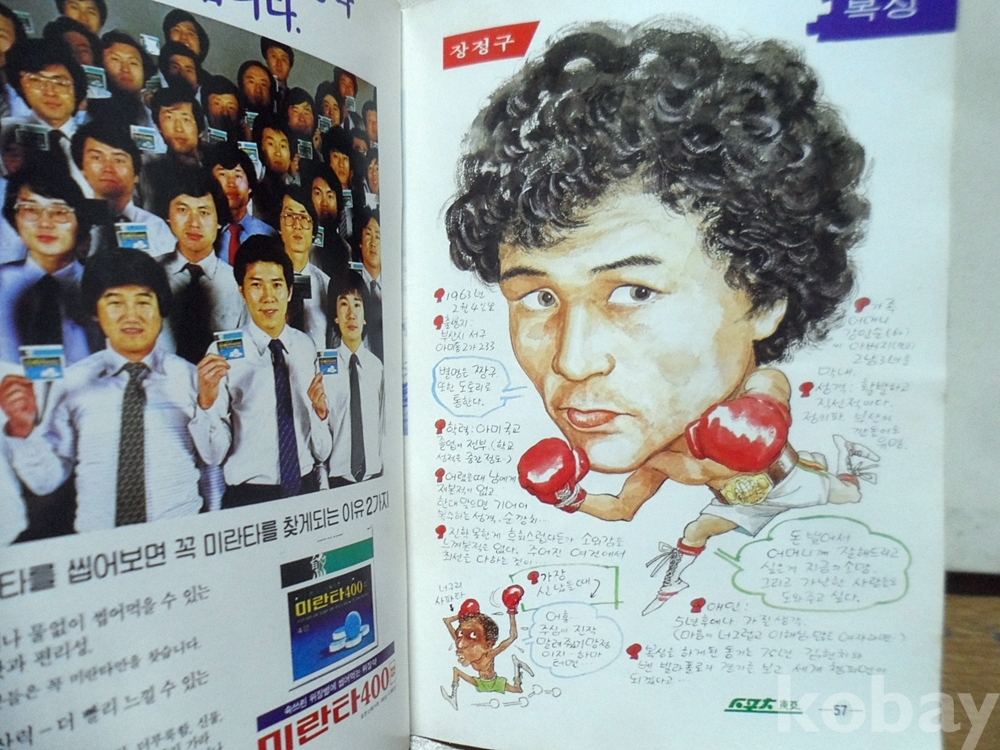 니다.
타를 씹어보면 꼭 미란타를 찾게되는 이유 2가지
나 물없이 씹어먹을 수 있는
편리성.
꼭 미란타만을 찾습니다.
더 빨리 느낄 수 있는
미란타400
속쓰린 위장병에 씹어먹는 위장약
미란타400정
복싱
장정구
1963년
2월 4일생
출생지:
부산시 서구
아미동2가 233
별명은 짱구
또한 도토리로
통한다.
학력: 아미국교
졸업이 전부 (학교
성적은 중간정도)
어렸을때 남에게
져본적이 없고
한대 맞으면 기어이
복수하는 성격.
느껴본적은 없다. 주어진 여건에서
최선을 다하는 것이
너그리
사파타
가장
신났을때
어휴
주심이 진작
말려주기망정
가족
어머니
막내.
성격: 활발하고
직선적이다.
정의파 부산의
돈 벌어서
어머니께 잘해드리고
싶은게 지금의 소망.
그리고 가난한 사람들을
도와주고 싶다.
애인:
5년후에나 가질 생각.
복싱을 하게된 동기는 75년 김현치와
벤 빌라플로가 경기를 보고 세계 챔피언이
되겠다고…
스포츠 東亞
57
kobay